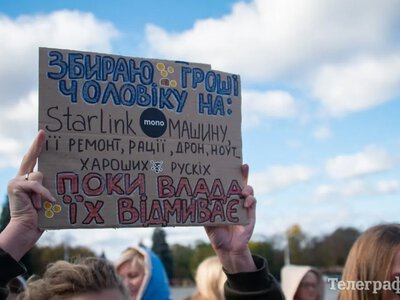 ЗБИРАЮ ГРОШІ
ЧОЛОВІКУ НА:
Starlink mono МАШИНУ,
ЇЇ РЕМОНТ, РАЦІЇ, ДРОН, НОУТ,
ХАРОШИХ РУСКІХ
ПОКИ ВЛАДА
ЇХ ВІДМИВАЄ
Телеграф